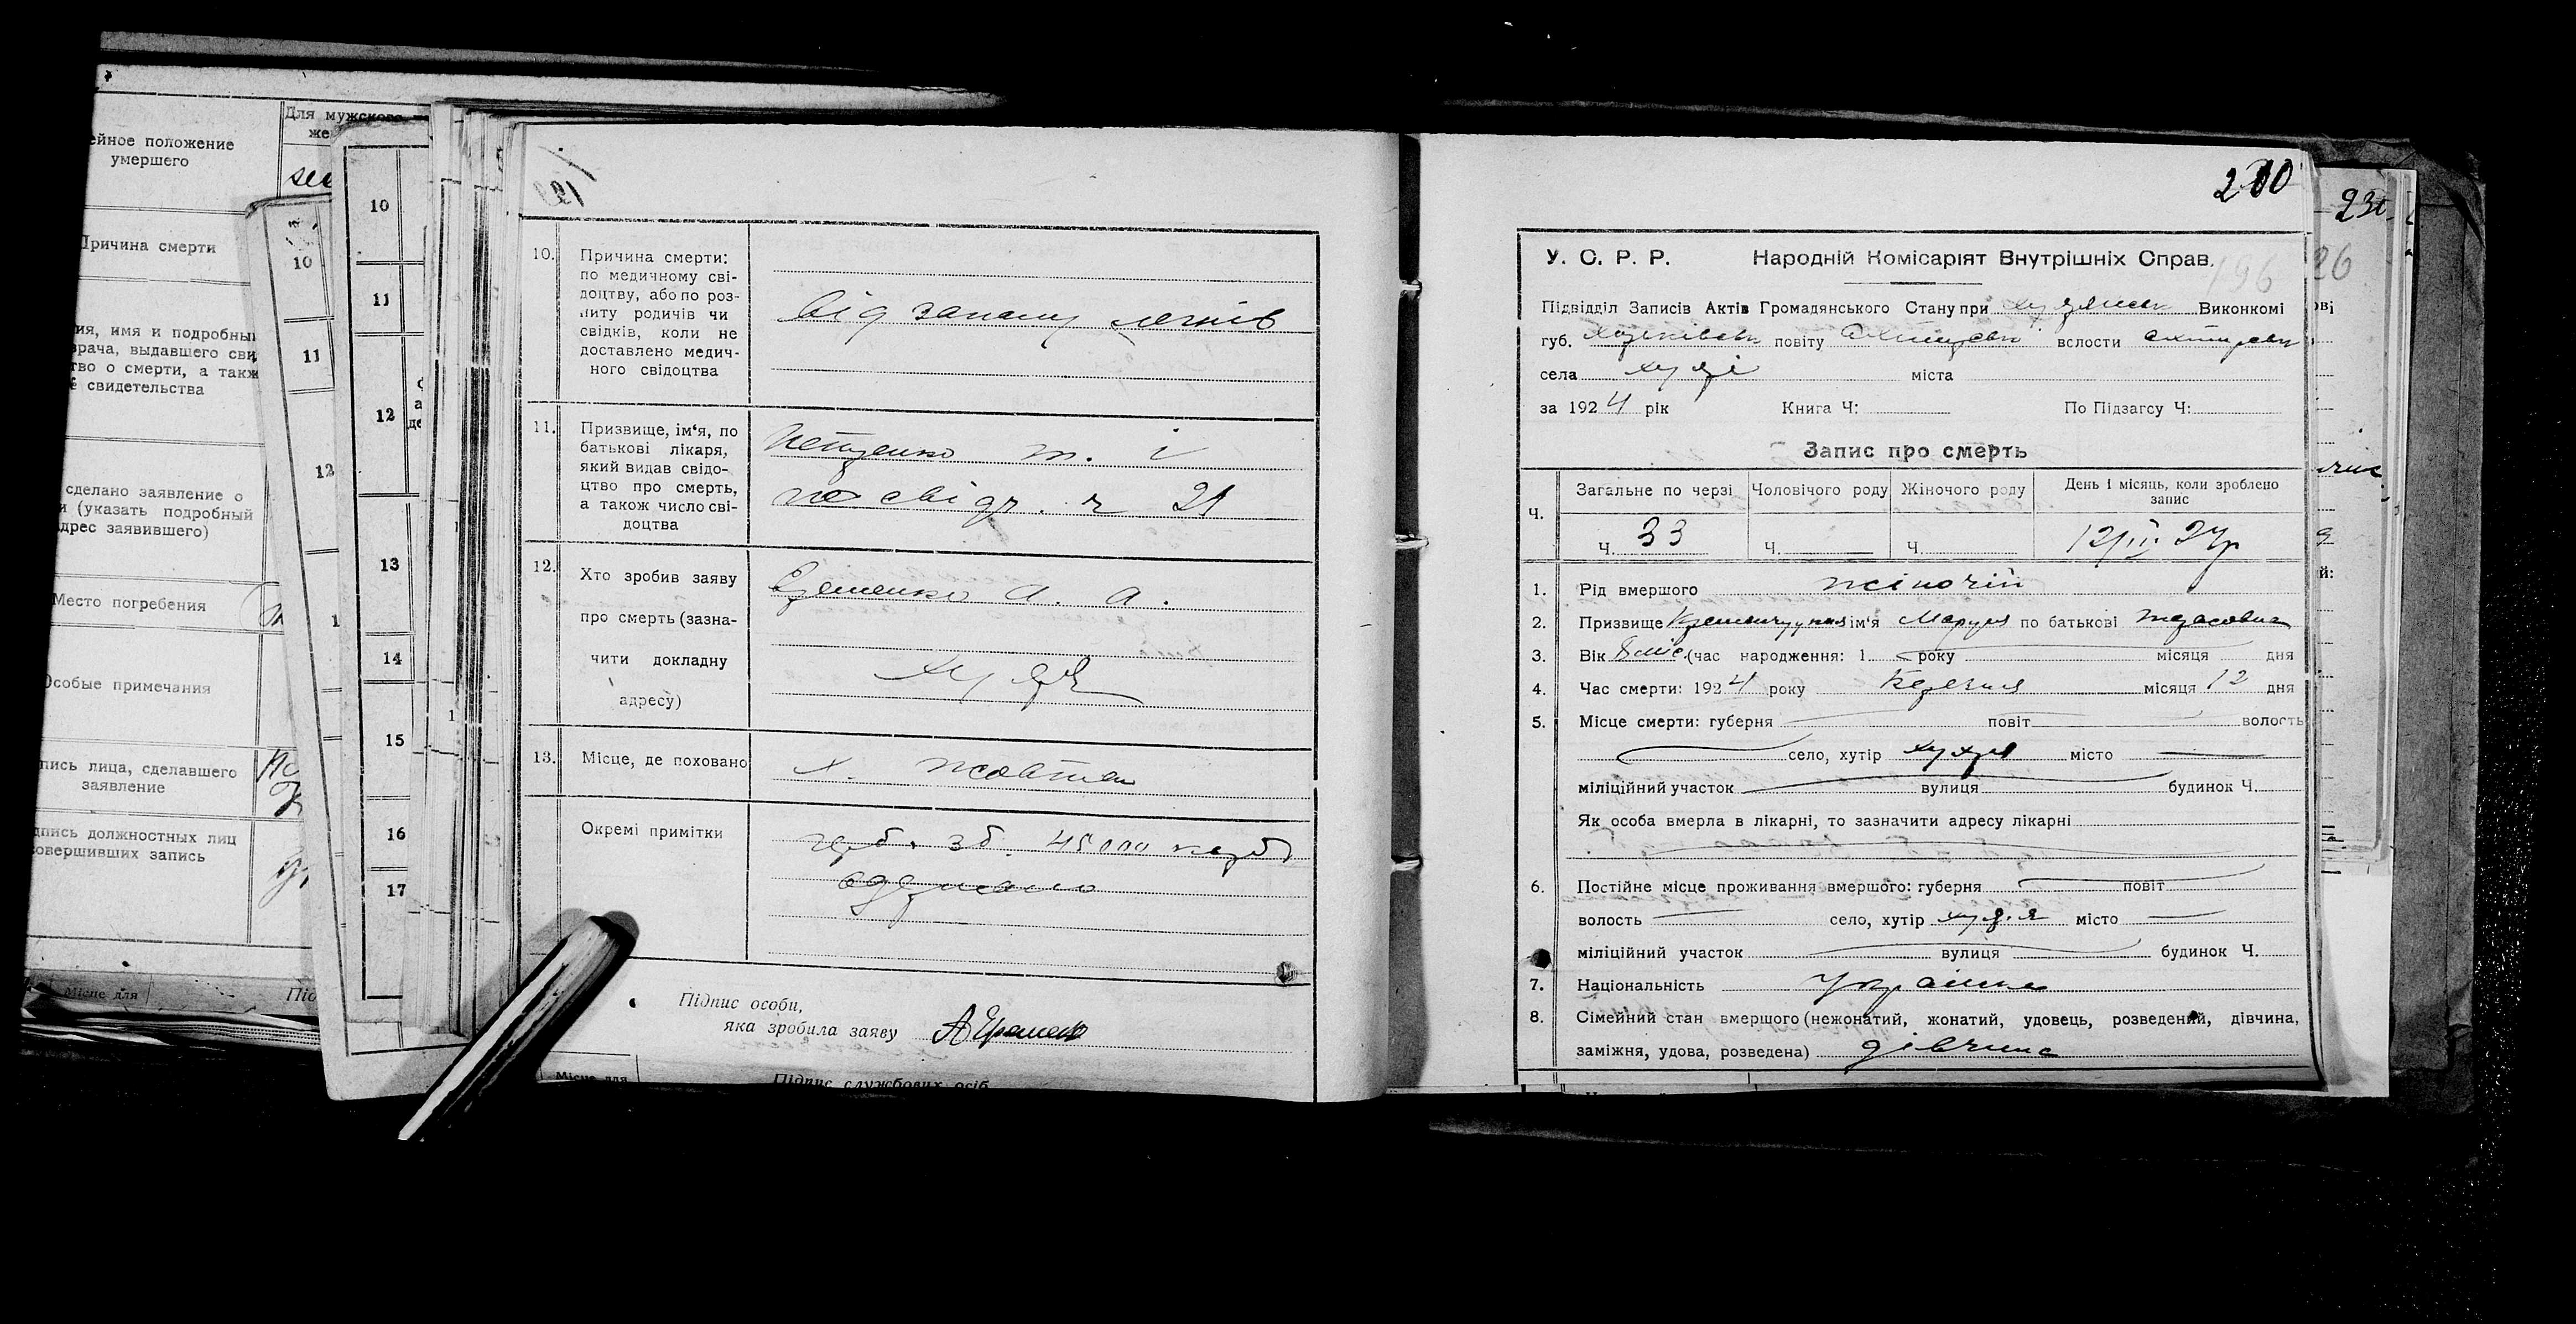 ейное положение
умершего
Для мужского
же
Причина смерти
ия, имя и подробный
врача, выдавшего сви
тво о смерти, а такж
е свидетельства
сделано заявление о
и (указать подробный
дрес заявившего)
Место погребения
Особые примечания
пись лица, сделавшего
заявление
дпись должностных лиц
совершивших запись
Місце для
Під
10
11
12
1
10
11
12
13
14
15
16
17
10. Причина смерти:
по медичному сві-
доцтву, або по роз-
питу родичів чи
свідків, коли не
доставлено медич-
ного свідоцтва
від запалу легнів
11. Призвище, ім‘я, по
батькові лікаря,
який видав свідо-
цтво про смерть,
а також число сві-
доцтва
Петренко т. і
по свідч. ч 21
12. Хто зробив заяву
про смерть (зазна-
чити докладну
адресу)
Єременко А. А.
13. Місце, де поховано
х. Жовтн
Окремі примітки
герб. зб. 45000 карб
одержано
Підпис особи,
яка зробила заяву АЕремен
Місце для
Підпис службових осіб
200
У. С. Р. Р. Народній Комісаріят Внутрішніх Справ.
196
Підвідділ Записів Актів Громадянського Стану при Виконкомі
губ. Харківськ повіту Охтирськ волости Охтирськ
села міста
за 1924 рік Книга Ч: По Підзагсу Ч:
Запис про смерть
Ч. Загальне по черзі Чоловічого роду Жіночого роду День і місяць, коли зроблено
запис
Ч. 33 Ч. Ч. 12/III 24р
1. Рід вмершого жіночій
2. Призвище ім‘я Маруся по батькові Тарасовна
3. Вік 8 міс. (час народження: 1 року місяця дня
4. Час смерти: 1924 року Березня місяця 12 дня
5. Місце смерти: губерня повіт волость
село, хутір місто
міліційний участок вулиця будинок Ч.
Як особа вмерла в лікарні, то зазначити адресу лікарні
6. Постійне місце проживання вмершого: губерня повіт
волость село, хутір місто
міліційний участок вулиця будинок Ч.
7. Національність Українка
8. Сімейний стан вмершого (нежонатий, жонатий, удовець, розведений, дівчина,
заміжня, удова, розведена) дівчина
230
26
ові
й: